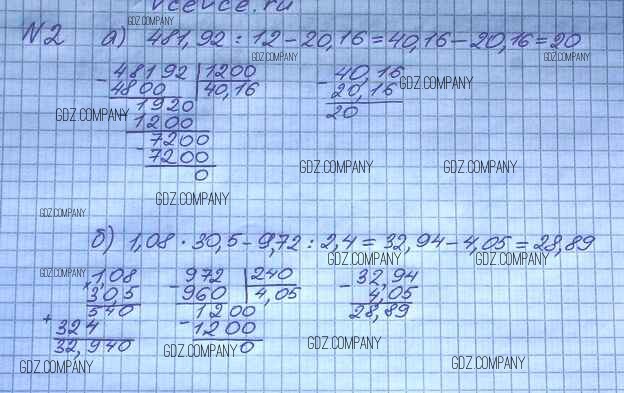 vcevce.ru
GDZ.COMPANY
N2 а) 481,92 : 12 – 20,16 = 40,16 – 20,16 = 20
GDZ.COMPANY GDZ.COMPANY
– 48192 | 1200
4800 | 40,16
– 40,16
20,16
20
GDZ.COMPANY
1920
1200
GDZ.COMPANY
– 7200
7200
0
GDZ.COMPANY GDZ.COMPANY
GDZ.COMPANY
GDZ.COMPANY
б) 1,08 · 30,5 – 9,72 : 2,4 = 32,94 – 4,05 = 28,89
GDZ.COMPANY GDZ.COMPANY
GDZ.COMPANY
× 1,08
30,5
540
+ 324
32,940
– 972 | 240
960 | 4,05
1200
– 1200
0
– 32,94
4,05
28,89
GDZ.COMPANY GDZ.COMPANY GDZ.COMPANY GDZ.COMPANY